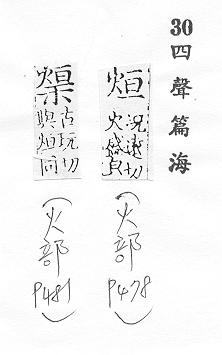 30四聲篇海
烜
況遠切
火盛皃
(火部 P478)
古玩切
與烜同
(火部 P481)